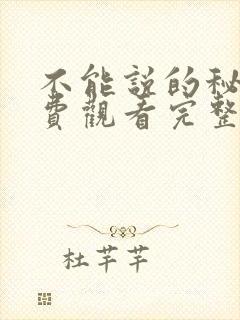 不能説的秘
費觀看完整
杜芊芊